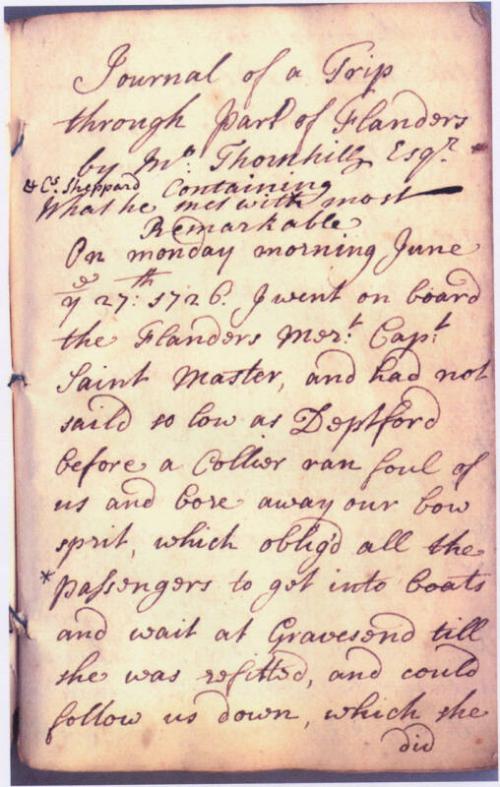 Journal of a Trip
through Part of Flanders
by Mr. Thornhill, Esqr.
& Cs. Sheppard Containing
What he met with most
Remarkable
On monday morning June
ye 27th: 1726. I went on board
the Flanders Mert. Capt.
Saint Master, and had not
saild so low as Deptford
before a Collier ran foul of
us and bore away our bow
sprit, which oblig'd all the
* passengers to get into boats
and wait at Gravesend till
she was refitted, and could
follow us down, which she
did